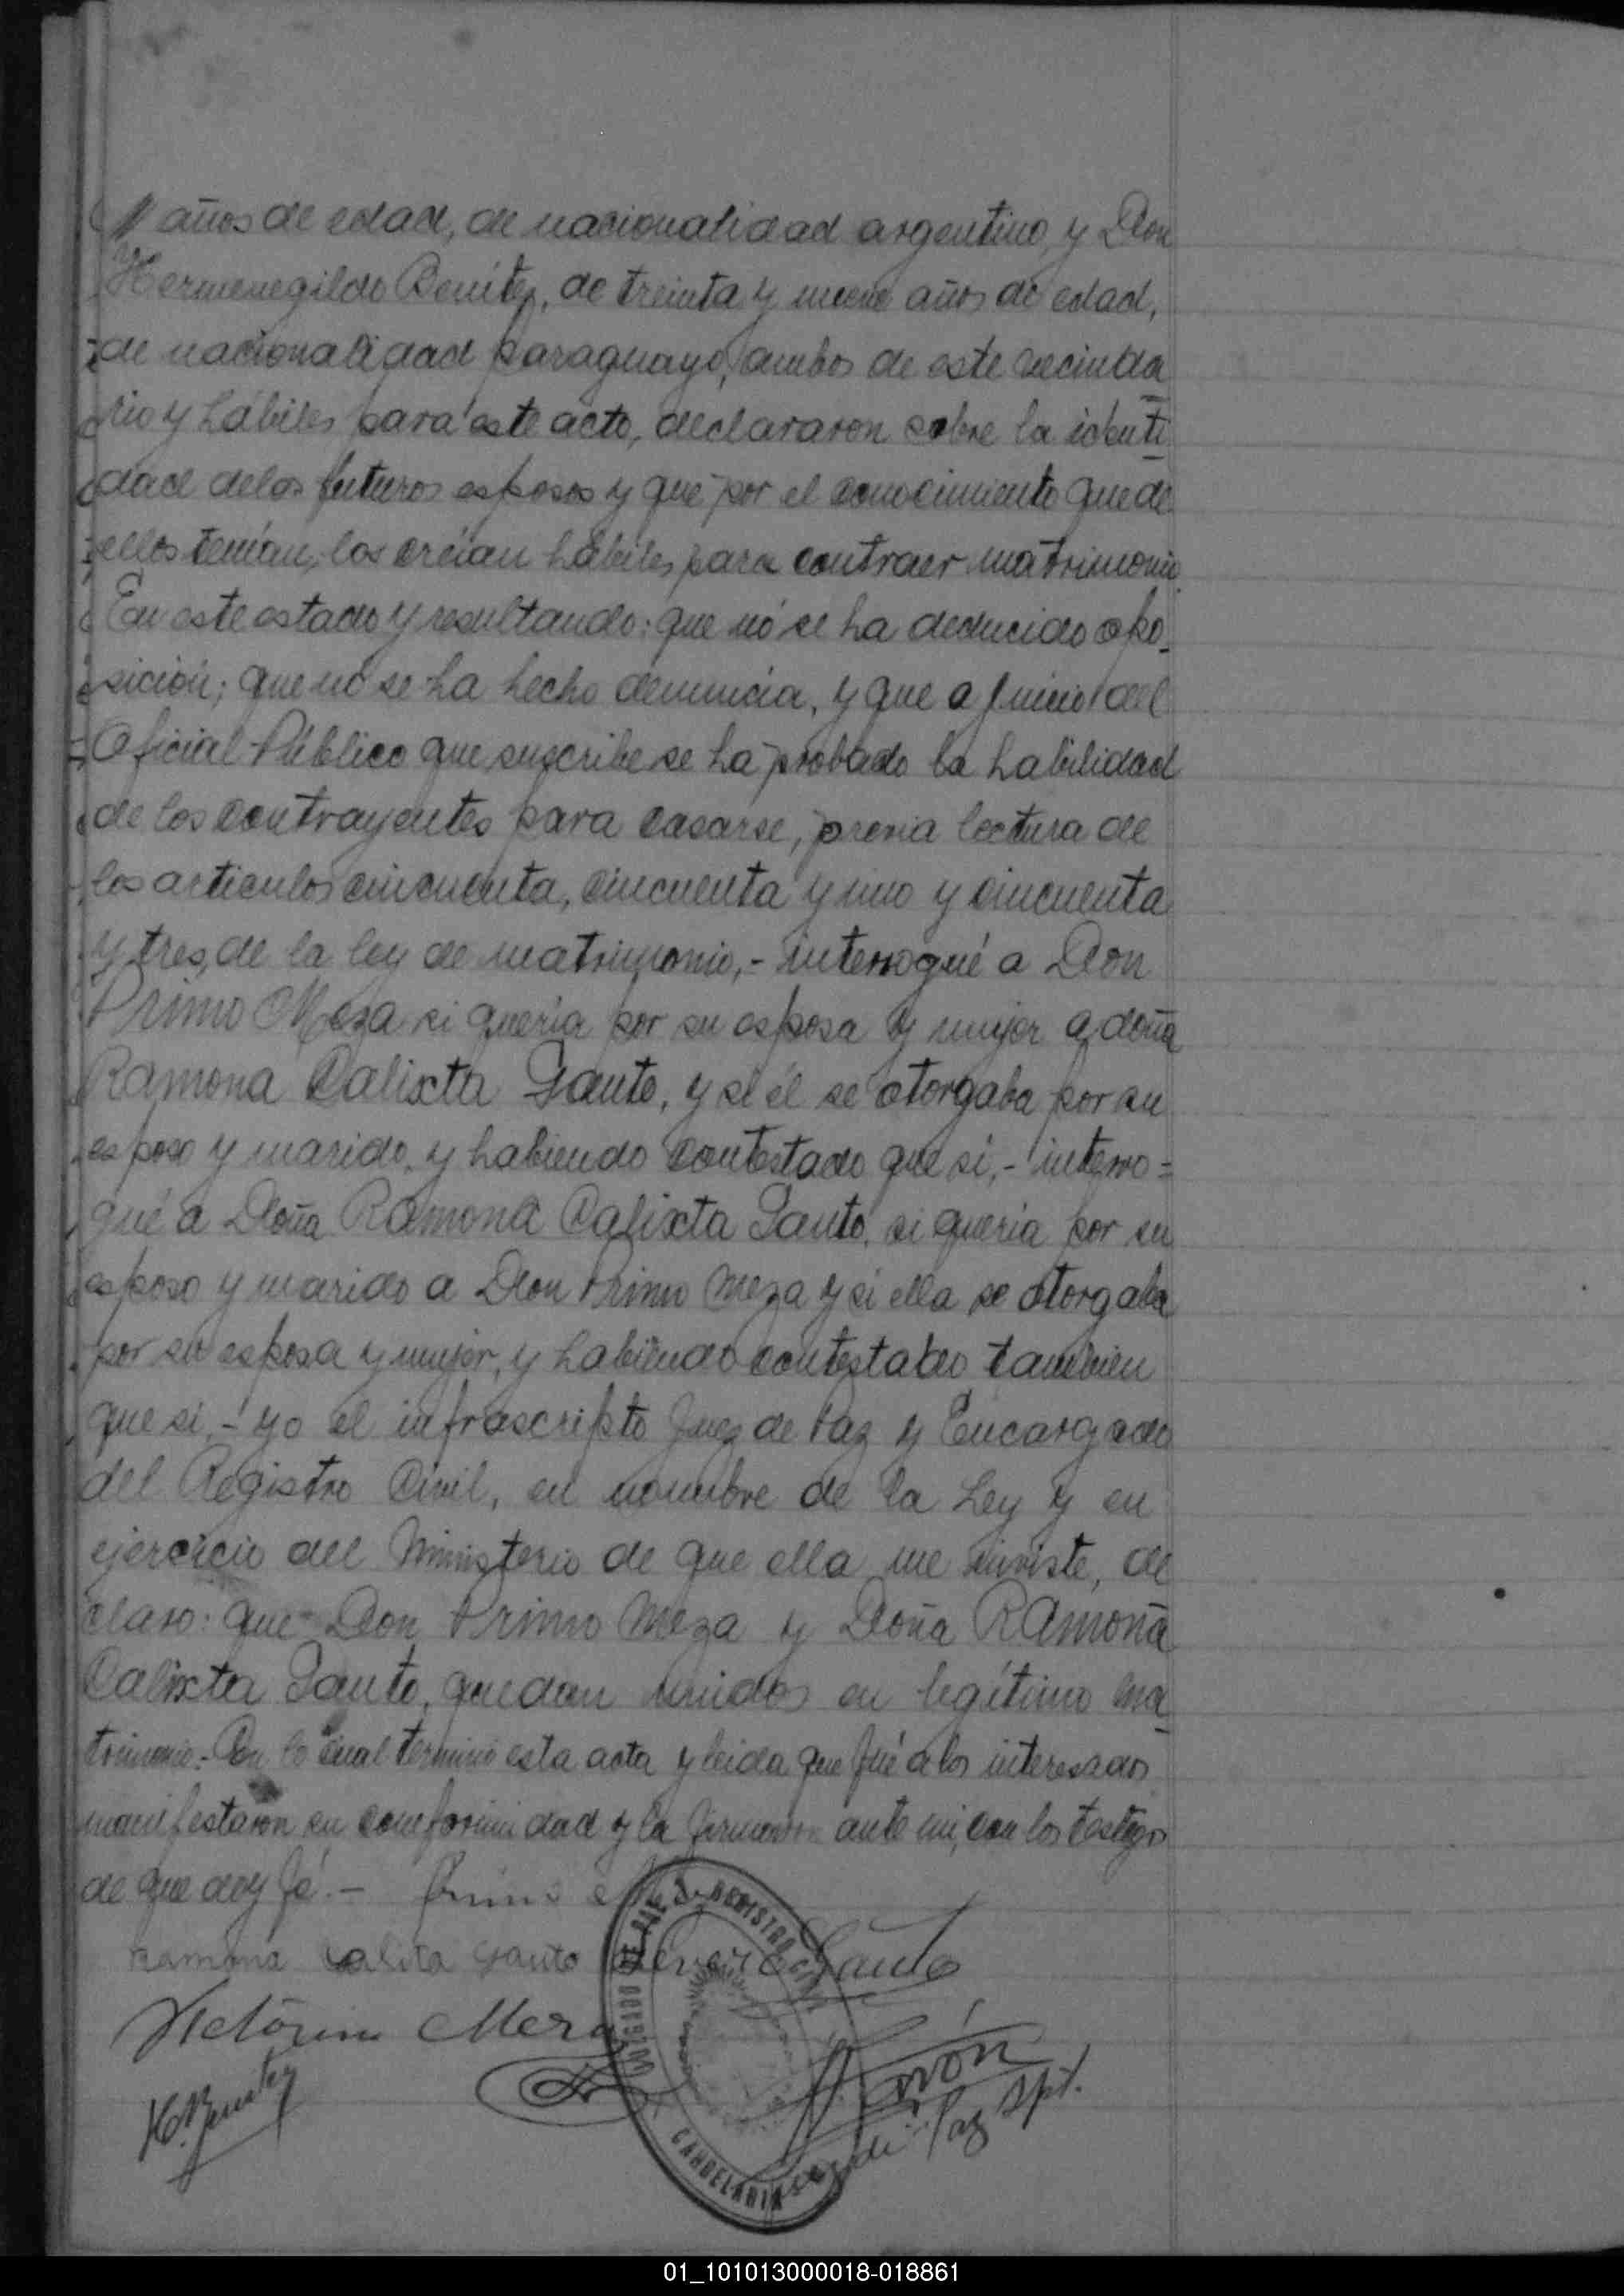 años de edad, de nacionalidad argentino, y Don
Hermenegildo Benítez, de treinta y nueve años de edad,
de nacionalidad paraguayo, ambos de este vecinda
rio y hábiles para este acto, declararon sobre la identi
dad de los futuros esposos y que por el conocimiento que de
ellos tenían, los creían hábiles para contraer matrimonio
En este estado y resultando: que nó se ha deducido opo-
sición; que nó se ha hecho denuncia, y que a juicio del
Oficial Público que suscribe se ha probado la habilidad
de los contrayentes para casarse, previa lectura de
los articulos cincuenta, cincuenta y uno y cincuenta
y tres, de la ley de matrimonio,- interrogué a Don
Primo Meza si quería por su esposa y mujer a doña
Ramona Calixta Gauto, y si él se otorgaba por su
esposo y marido, y habiendo contestado que sí,- interro=
gué a Doña Ramona Calixta Gauto, si quería por su
esposo y marido a Don Primo Meza y si ella se otorgaba
por su esposa y mujer, y habiendo contestado tambien
que si,- yo el infrascripto Juez de Paz y Encargado
del Registro Civil, en nombre de la Ley y en
ejercicio del Ministerio de que ella me inviste, de
claro: que Don Primo Meza y Doña Ramona
Calixta Gauto, quedan unidos en legítimo ma
trimonio.- Con lo cual terminó esta acta y leida que fué a los interesados
manifestaron su conformidad y la firmaron ante mi, con los testigos
de que doy fé.- Primo
Ramona Calita Gauto Gauto
Victorino Meza
H. Benitez
JUZGADO DE PAZ Y REGISTRO CIVIL
CANDELARIA
Juez de Paz Spt.
01_101013000018-018861